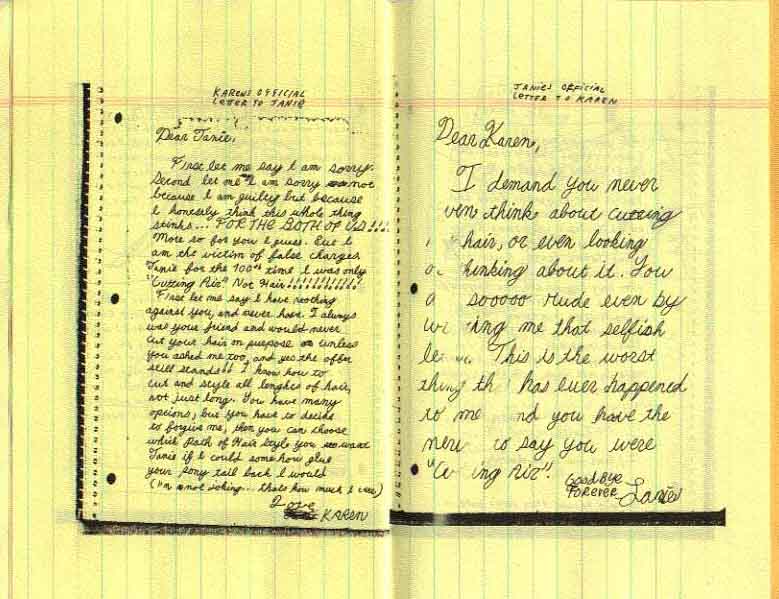 KARENS OFFICIAL
LETTER TO JANIE
Dear Janie,
First let me say I am sorry.
Second let me I am sorry not
because I am guilty but because
I honestly think this whole thing
stinks... FOR THE BOTH OF US!!!!
More so for you I guess. But I
am the victim of false charges
Janie for the 100th time I was only
"Cutting Air" Not Hair!!!!!!!!!!!!
First let me say I have nothing
against you, and never have. I always
was your friend and would never
cut your hair on purpose unless
you asked me too, and yes the offer
still stands!! I know how to
cut and style all lenghts of hair,
not just long. You have many
opcions, but you have to decide
to forgive me, then you can choose
which Path of Hair Style you want
Janie if I could some how glue
your pony tail back I would
(I'm not joking... thats how much I care)
Love
KAREN
JANIES OFFICIAL
LETTER TO KAREN
Dear Karen,
I demand you never
ven think about cutting
hair, or even looking
hinking about it. You
a sooooo rude even by
wr ing me that selfish
le This is the worst
thing th has ever happened
to me nd you have the
ner to say you were
"Cu ing Air".
GoodBye
FOREVER Janie